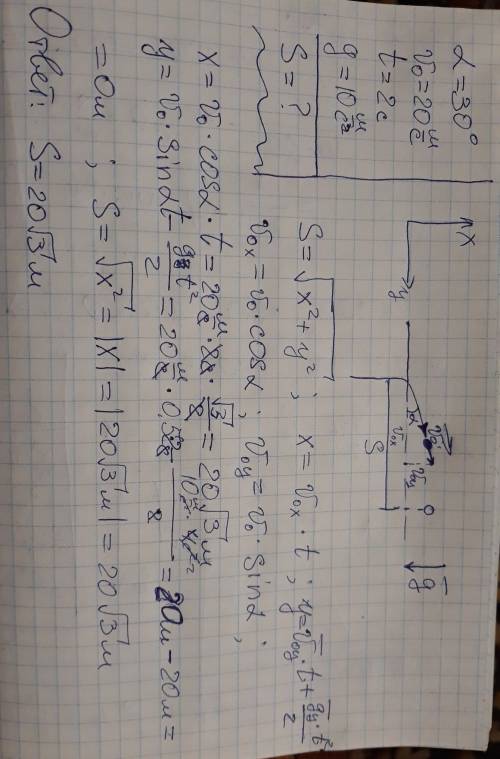 α = 30°
v₀ = 20 м/с
t = 2c
g = 10 м/с²
S = ?
x
y
v̄₀
α
v̄₀ₓ
v̄₀y
S
ḡ
S = √x² + y² ; x = v₀ₓ · t ; y = v̄₀y · t + ḡy · t²/2
v₀ₓ = v₀ · cosα ; v₀y = v₀ · sinα ;
x = v₀ · cosα · t = 20 м/с · 2с · √3/2 = 20√3 м
y = v₀ · sinαt - gt²/2 = 20 м/с · 0,5 · 2с - 10 м/с² · 4с²/2 = 20м - 20м =
= 0м ; S = √x² = |x| = |20√3 м| = 20√3 м
Ответ: S = 20√3 м